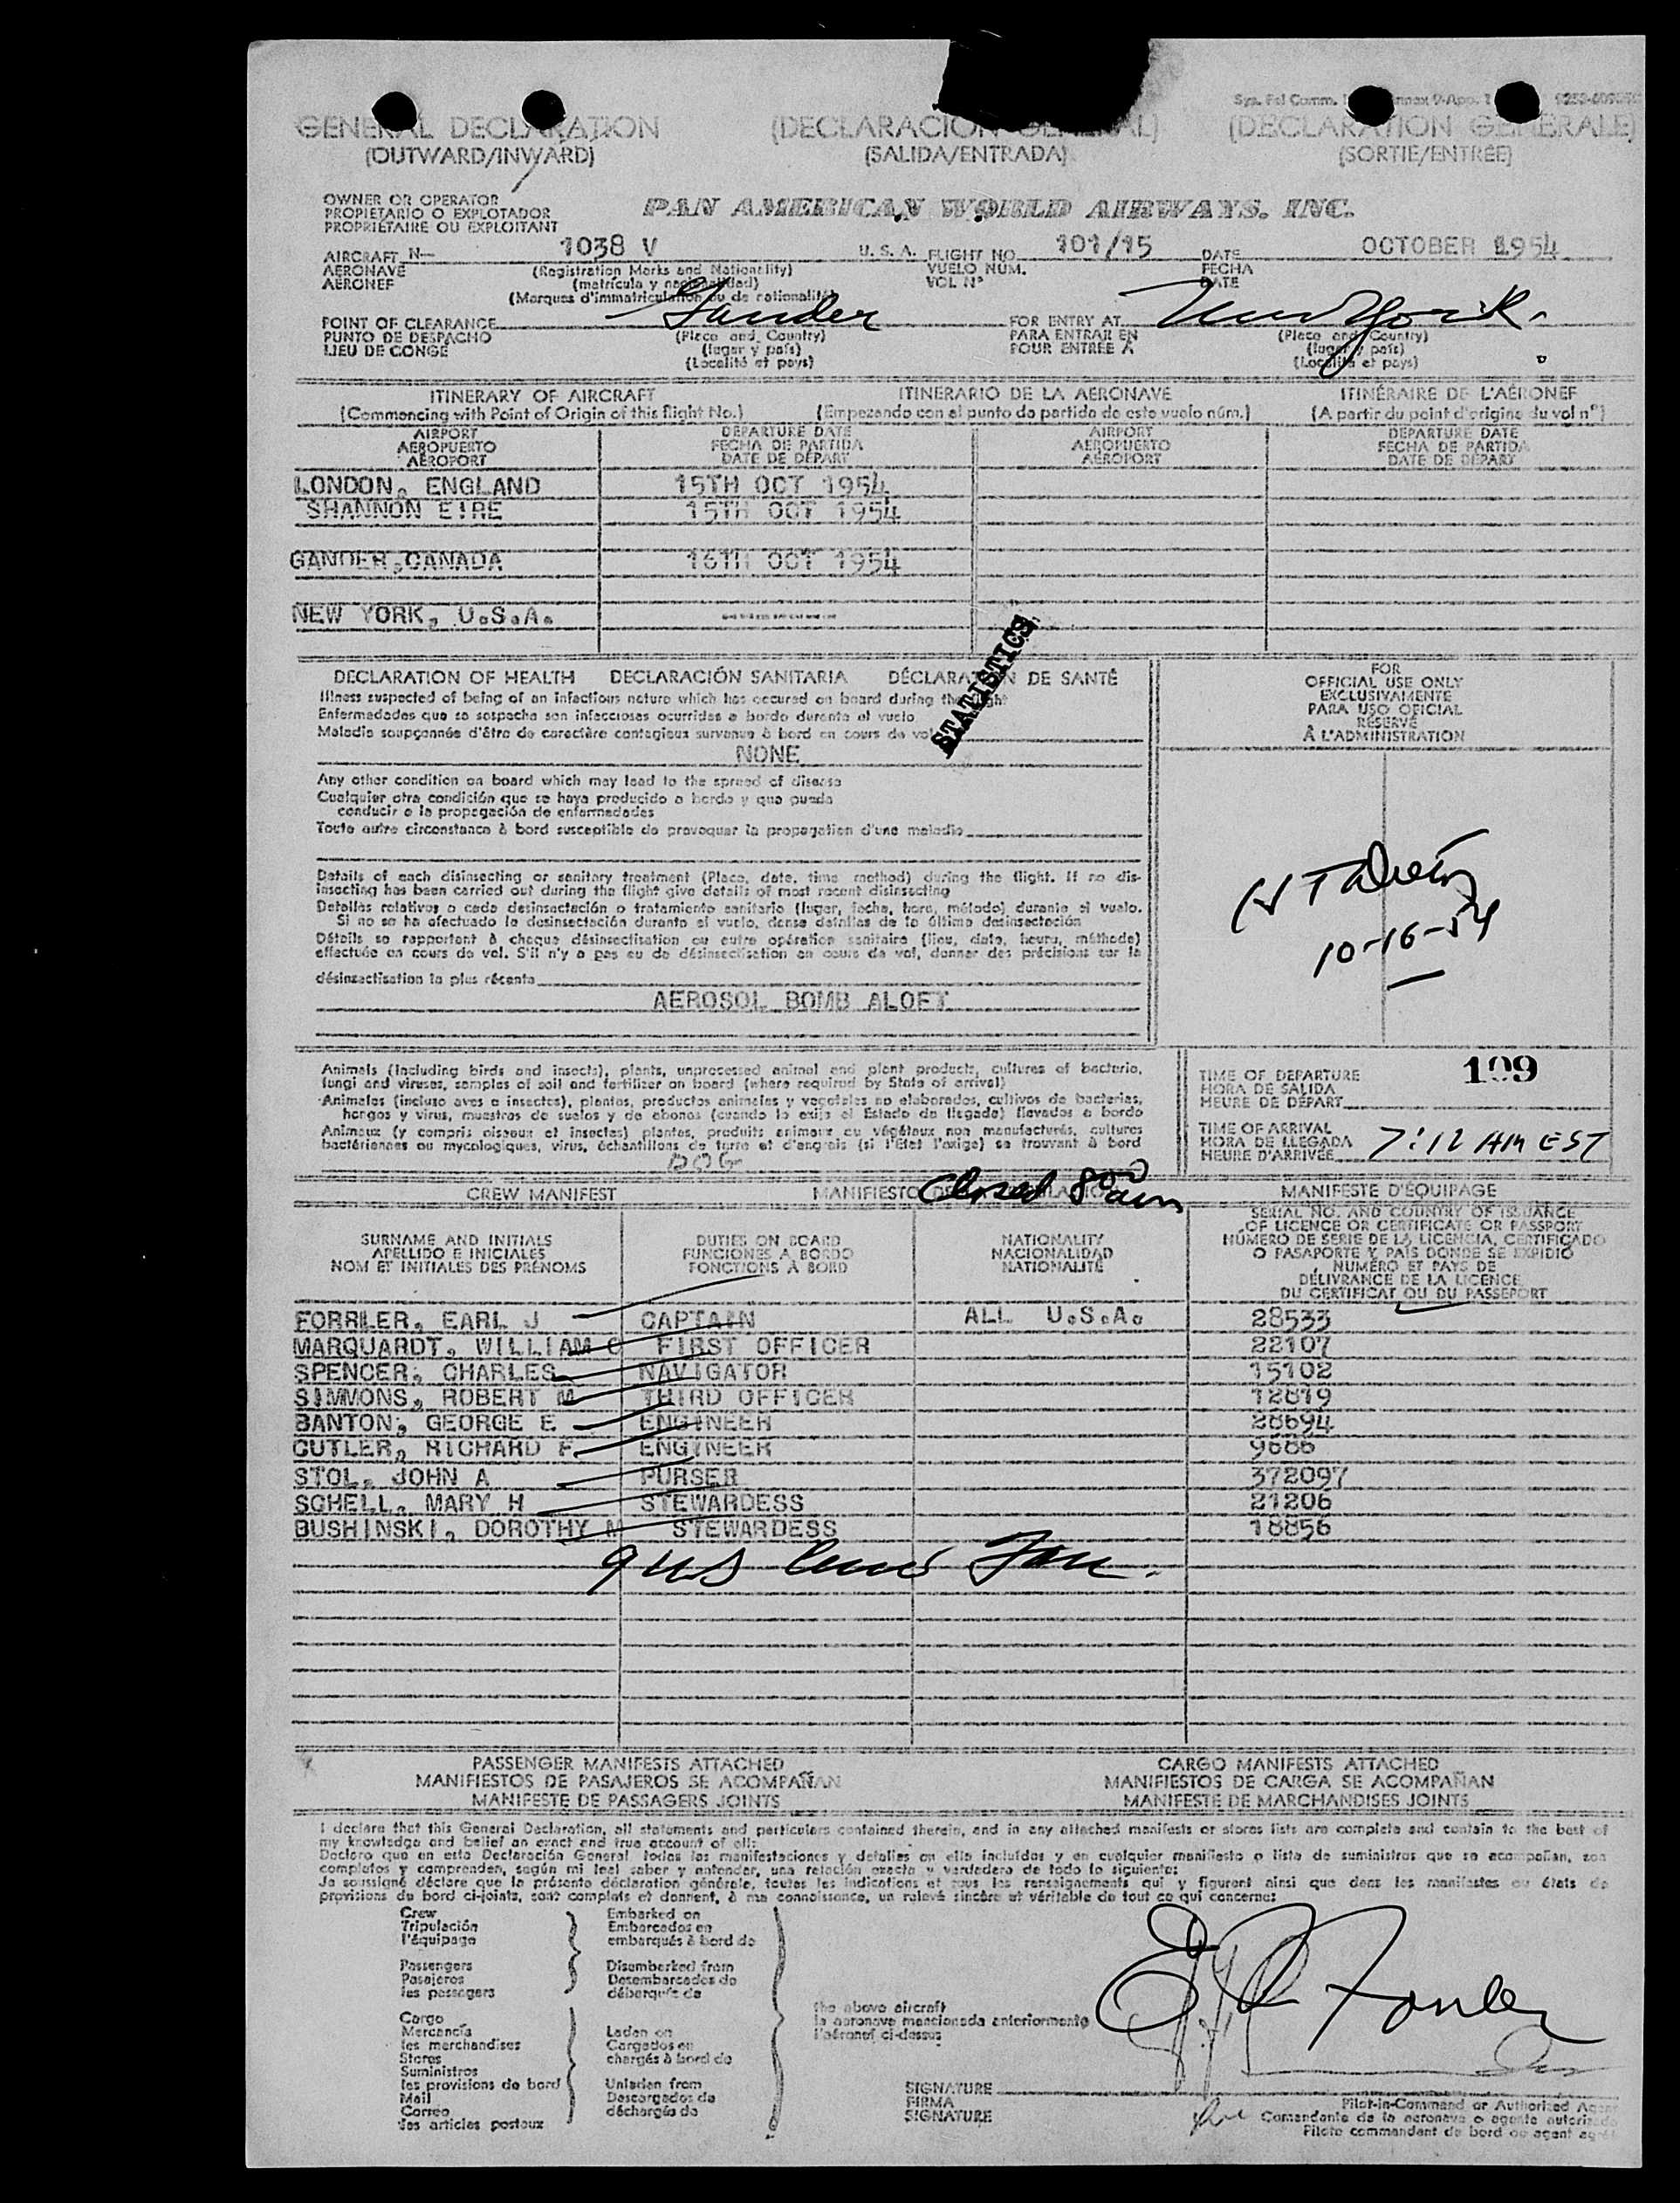 GENERAL DECLARATION (DECLARACION GENERAL) (DECLARATION GENERALE)
(OUTWARD/INWARD) (SALIDA/ENTRADA) (SORTIE/ENTRÉE)
OWNER OR OPERATOR
PROPIETARIO O EXPLOTADOR
PROPRIÉTAIRE OU EXPLOITANT
PAN AMERICAN WORLD AIRWAYS, INC.
AIRCRAFT N— 1038 V U. S. A. FLIGHT NO. 101/15 DATE OCTOBER 1954
AERONAVE (Registration Marks and Nationality) VUELO NÚM. FECHA
AÉRONEF (matrícula y nacionalidad) VOL Nº DATE
(Marques d'immatriculation ou de nationalité)
POINT OF CLEARANCE Gander FOR ENTRY AT New York.
PUNTO DE DESPACHO (Place and Country) PARA ENTRAR EN (Place and Country)
LIEU DE CONGÉ (lugar y país) POUR ENTRÉE À (lugar y país)
(Localité et pays) (Localité et pays)
ITINERARY OF AIRCRAFT ITINERARIO DE LA AERONAVE ITINÉRAIRE DE L'AÉRONEF
(Commencing with Point of Origin of this flight No.) (Empezando con el punto de partida de este vuelo núm.) (A partir du point d'origine du vol nº)
AIRPORT DEPARTURE DATE AIRPORT DEPARTURE DATE
AEROPUERTO FECHA DE PARTIDA AEROPUERTO FECHA DE PARTIDA
AÉROPORT DATE DE DÉPART AÉROPORT DATE DE DÉPART
LONDON, ENGLAND 15TH OCT 1954
SHANNON EIRE 15TH OCT 1954
GANDER, CANADA 16TH OCT 1954
NEW YORK, U.S.A. ----------
STATISTICS
DECLARATION OF HEALTH DECLARACIÓN SANITARIA DÉCLARATION DE SANTÉ
Illness suspected of being of an infectious nature which has occured on board during the flight
Enfermedades que se sospecha son infecciosas ocurridas a bordo durante el vuelo
Maladie soupçonnée d'être de caractère contagieux survenue à bord en cours de vol
NONE
Any other condition on board which may lead to the spread of disease
Cualquier otra condición que se haya producido a bordo y que pueda
conducir a la propagación de enfermedades
Toute autre circonstance à bord susceptible de provoquer la propagation d'une maladie
Details of each disinsecting or sanitary treatment (Place, date, time method) during the flight. If no dis-
insecting has been carried out during the flight give details of most recent disinsecting
Detalles relativos a cada desinsectación o tratamiento sanitario (lugar, fecha, hora, método) durante el vuelo.
Si no se ha efectuado la desinsectación durante el vuelo, dense detalles de la última desinsectación
Détails se rapportant à chaque désinsectisation ou autre opération sanitaire (lieu, date, heure, méthode)
effectuée en cours de vol. S'il n'y a pas eu de désinsectisation en cours de vol, donner des précisions sur la
désinsectisation la plus récente
AEROSOL BOMB ALOFT
FOR
OFFICIAL USE ONLY
EXCLUSIVAMENTE
PARA USO OFICIAL
RÉSERVÉ
À L'ADMINISTRATION
10-16-54
Animals (including birds and insects), plants, unprocessed animal and plant products, cultures of bacteria,
fungi and viruses, samples of soil and fertilizer on board (where required by State of arrival)
Animales (incluso aves e insectos), plantas, productos animales y vegetales no elaborados, cultivos de bacterias,
hongos y virus, muestras de suelos y de abonos (cuando lo exija el Estado de llegada) llevados a bordo
Animaux (y compris oiseaux et insectes) plantes, produits animaux ou végétaux non manufacturés, cultures
bactériennes ou mycologiques, virus, échantillons de terre et d'engrais (si l'État l'exige) se trouvant à bord
DOG
109
TIME OF DEPARTURE
HORA DE SALIDA
HEURE DE DÉPART
TIME OF ARRIVAL
HORA DE LLEGADA
HEURE D'ARRIVÉE 7:12 AM EST
Closed 8:00 am
CREW MANIFEST MANIFIESTO DE MANIFESTE D'ÉQUIPAGE
SURNAME AND INITIALS
APELLIDO E INICIALES
NOM ET INITIALES DES PRÉNOMS
DUTIES ON BOARD
FUNCIONES A BORDO
FONCTIONS À BORD
NATIONALITY
NACIONALIDAD
NATIONALITÉ
SERIAL NO. AND COUNTRY OF ISSUANCE
OF LICENCE OR CERTIFICATE OR PASSPORT
NÚMERO DE SERIE DE LA LICENCIA, CERTIFICADO
O PASAPORTE Y PAÍS DONDE SE EXPIDIÓ
NUMÉRO ET PAYS DE
DÉLIVRANCE DE LA LICENCE
DU CERTIFICAT OU DU PASSEPORT
FORRLER, EARL J CAPTAIN ALL U.S.A. 28533
MARQUARDT, WILLIAM C FIRST OFFICER 22107
SPENCER, CHARLES NAVIGATOR 15102
SIMMONS, ROBERT M THIRD OFFICER 12819
BANTON, GEORGE E ENGINEER 28694
CUTLER, RICHARD F ENGINEER 9686
STOL, JOHN A PURSER 372097
SCHELL, MARY H STEWARDESS 21206
BUSHINSKI, DOROTHY M STEWARDESS 18856
9 US
PASSENGER MANIFESTS ATTACHED CARGO MANIFESTS ATTACHED
MANIFIESTOS DE PASAJEROS SE ACOMPAÑAN MANIFIESTOS DE CARGA SE ACOMPAÑAN
MANIFESTE DE PASSAGERS JOINTS MANIFESTE DE MARCHANDISES JOINTS
I declare that this General Declaration, all statements and particulars contained therein, and in any attached manifests or stores lists are complete and contain to the best of
my knowledge and belief an exact and true account of all:
Declaro que en esta Declaración General todas las manifestaciones y detalles en ella incluídos y en cualquier manifiesto o lista de suministros que se acompañan, son
completos y comprenden, según mi leal saber y entender, una relación exacta y verdadera de todo lo siguiente:
Je soussigné déclare que la présente déclaration générale, toutes les indications et tous les renseignements qui y figurent ainsi que dans les manifestes ou états de
provisions du bord ci-joints, sont complets et donnent, à ma connaissance, un relevé sincère et véritable de tout ce qui concerne:
Crew
Tripulación
l'équipage
Passengers
Pasajeros
les passagers
Embarked on
Embarcados en
embarqués à bord de
Disembarked from
Desembarcados de
débarqués de
Cargo
Mercancía
les merchandises
Stores
Suministros
les provisions de bord
Mail
Correo
les articles postaux
Laden on
Cargados en
chargés à bord de
Unladen from
Descargados de
déchargés de
the above aircraft
la aeronave mencionada anteriormente
l'aéronef ci-dessus
SIGNATURE
FIRMA
SIGNATURE
Pilot-in-Command or Authorized Agent
Comandante de la aeronave o agente autorizado
Pilote commandant de bord ou agent agréé